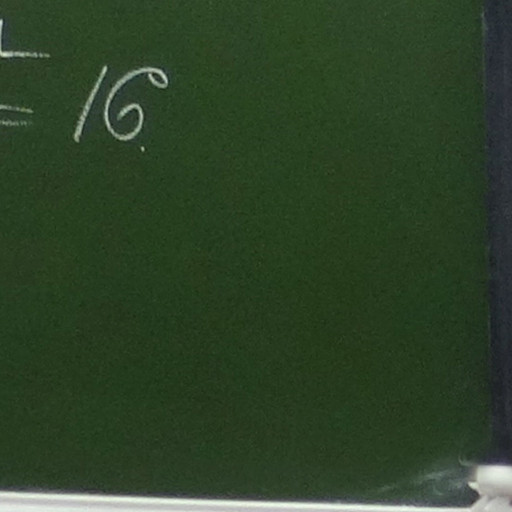 = 16.